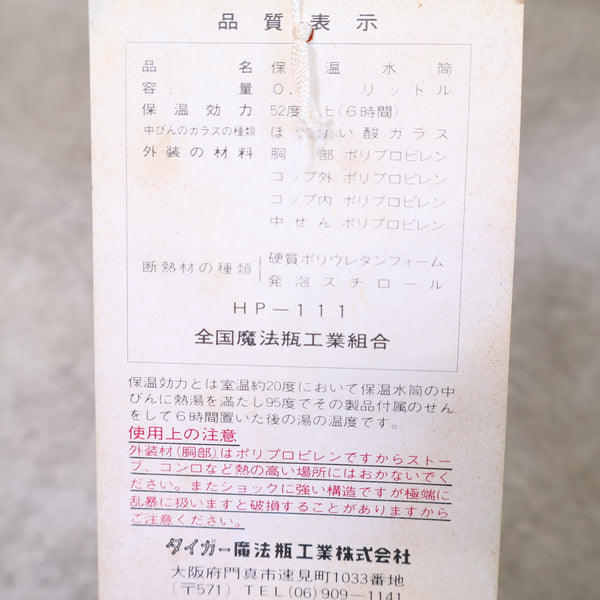 品質表示
品名 保温水筒
容量 0. リットル
保温効力 52度 上(6時間)
中びんのガラスの種類 ほ い酸ガラス
外装の材料 胴部 ポリプロピレン
コップ外 ポリプロピレン
コップ内 ポリプロピレン
中せん ポリプロピレン
断熱材の種類 硬質ポリウレタンフォーム
発泡スチロール
HP-111
全国魔法瓶工業組合
保温効力とは室温約20度において保温水筒の中
びんに熱湯を満たし95度でその製品付属のせん
をして6時間置いた後の湯の温度です。
使用上の注意
外装材(胴部)はポリプロピレンですからストー
ブ、コンロなど熱の高い場所にはおかないでく
ださい。またショックに強い構造ですが極端に
乱暴に扱いますと破損することがありますから
ご注意ください。
タイガー魔法瓶工業株式会社
大阪府門真市速見町1033番地
〔〒571〕 TEL(06)909-1141